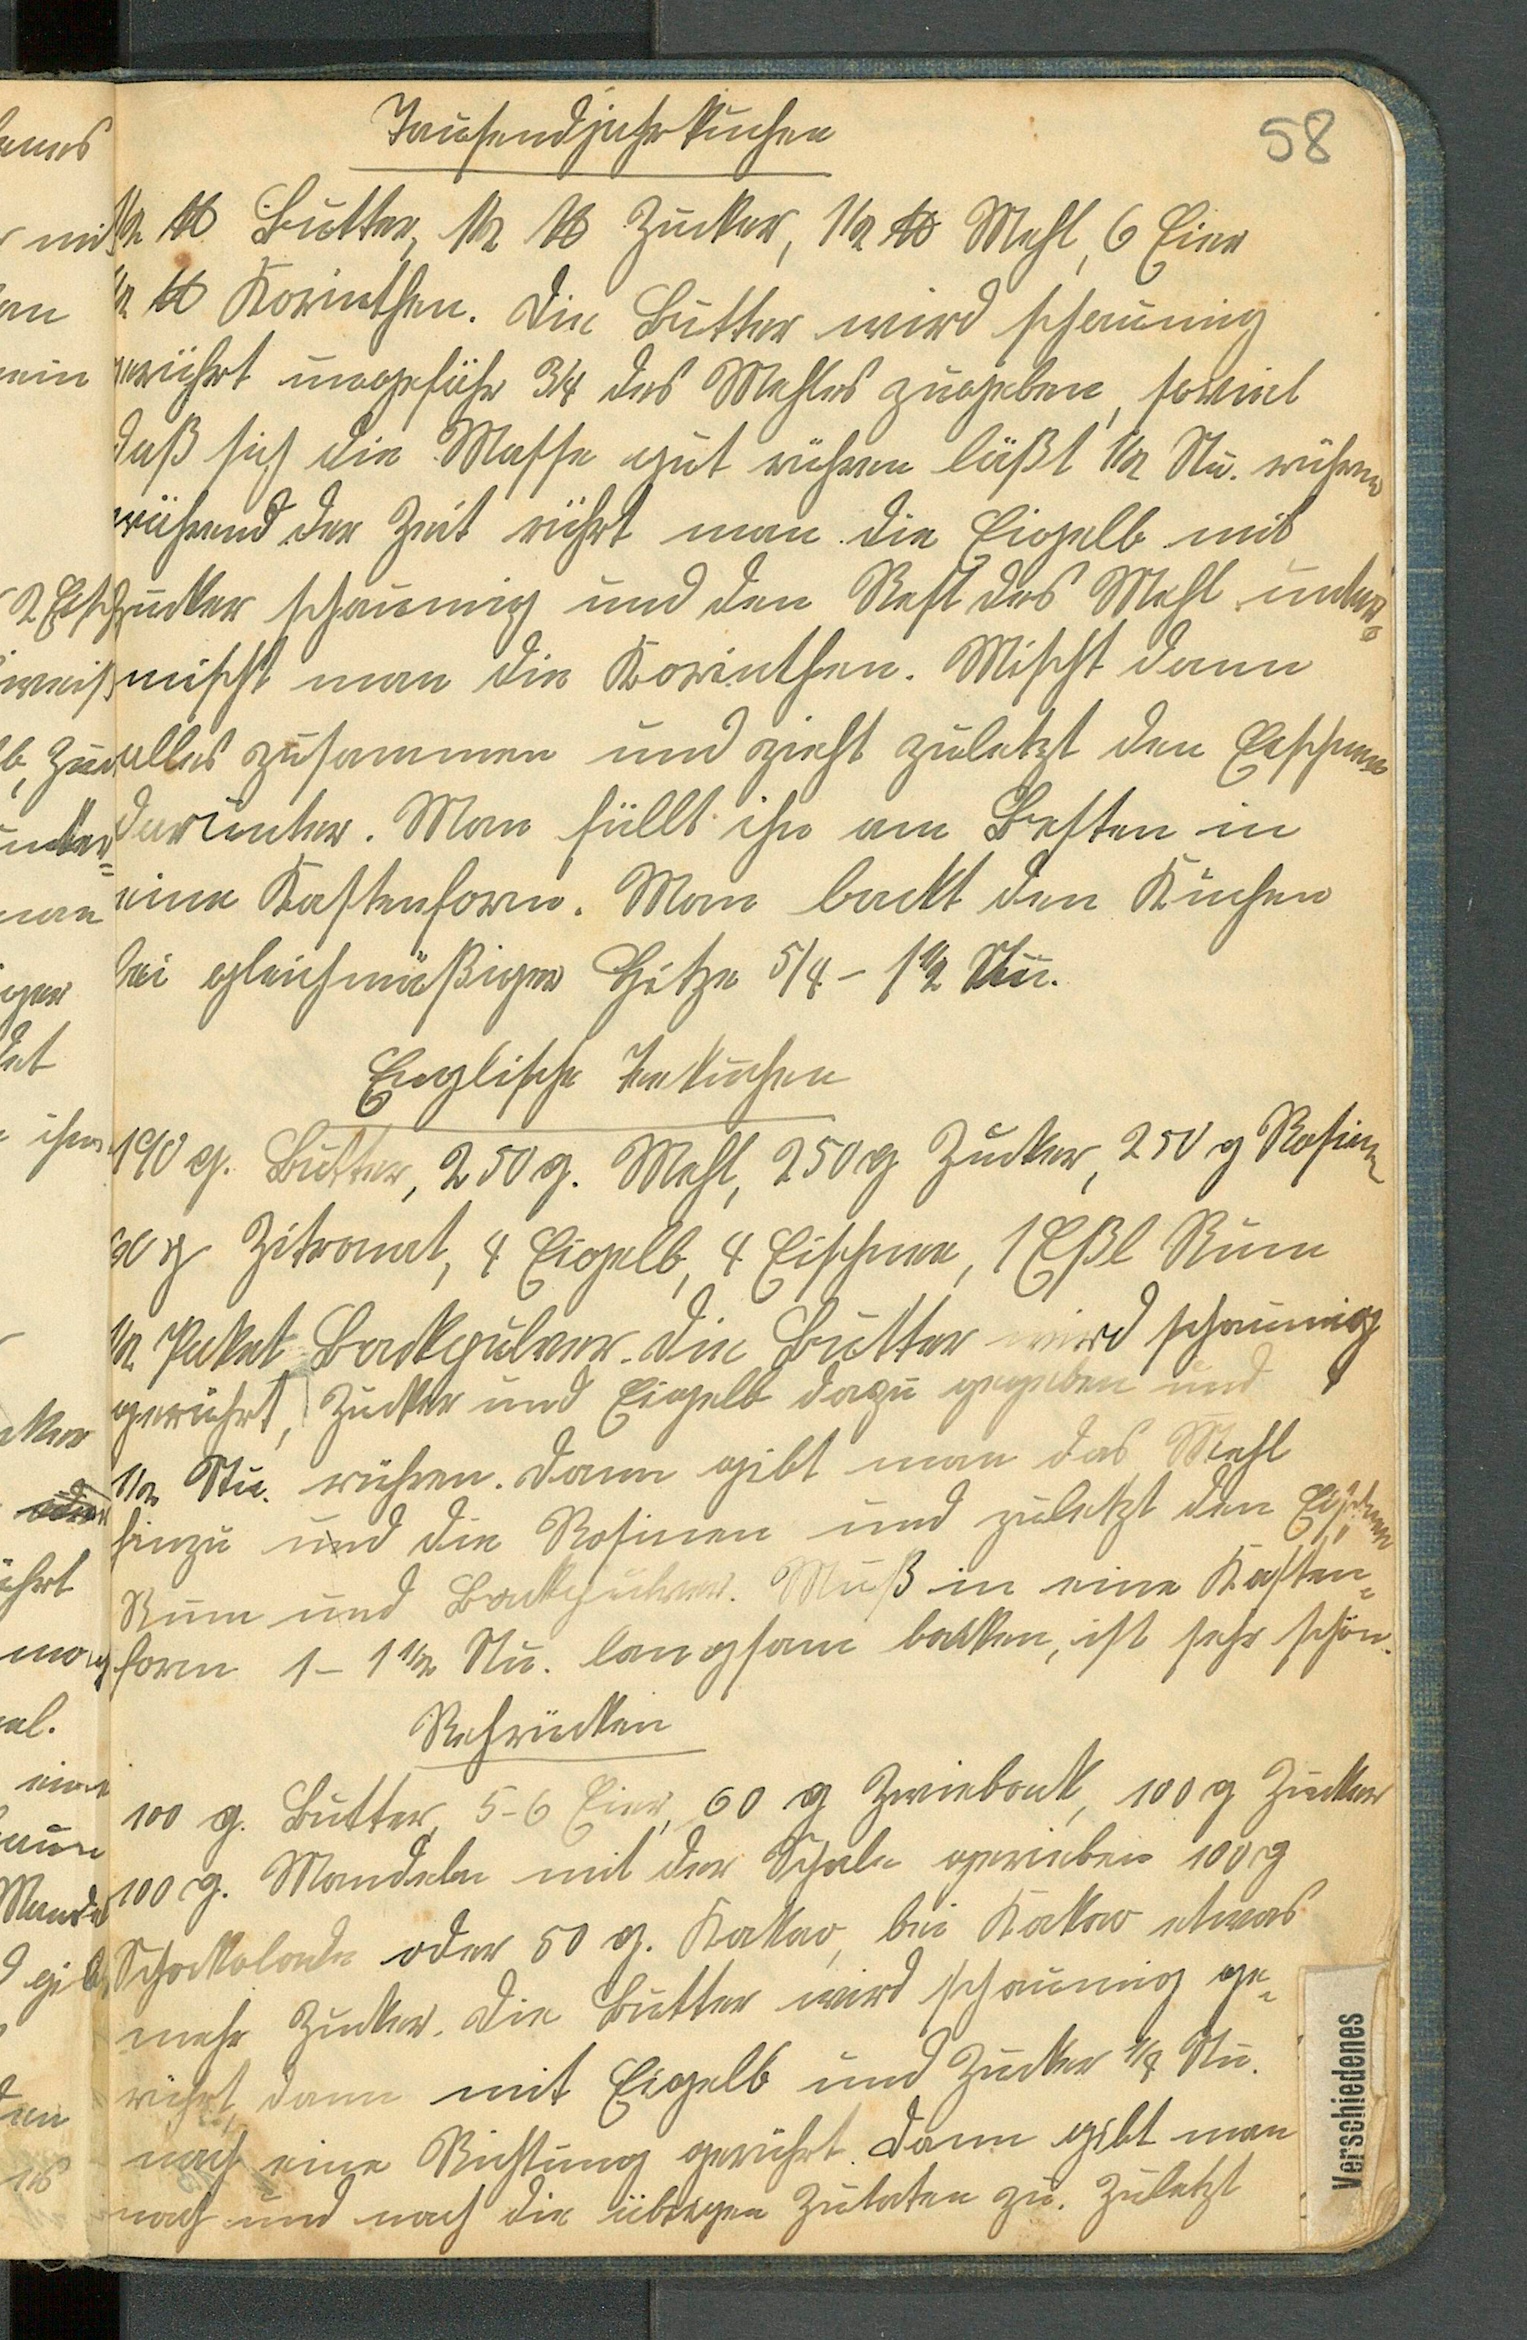 58
Tausendjahrkuchen
1/2 ℔ Butter, 1/2 ℔ Zucker, 1 1/2 ℔ Mehl, 6 Eier
1/2 ℔ Korinthen. Die Butter wird schaumig
gerührt ungefähr 3/4 des Mehles zugeben, soviel
daß sich die Masse gut rühren läßt 1/2 Stu. rühren
während der Zeit rührt man die Eigelb mit
Zucker schaumig und den Rest des Mehl unter-
mischt man die Korinthen. Mischt dann
alles zusammen und zieht zuletzt den Eischnee
darunter. Man füllt ihn am Besten in
eine Kastenform. Man backt den Kuchen
bei gleichmäßiger Hitze 5/4 - 1 1/2 Stu.
Englische Teekuchen
190 g. Butter, 250 g. Mehl, 250 g Zucker, 250 g Rosinen
g Zitronat, 4 Eigelb, 4 Eischnee, 1 Eßl Rum
1/2 Paket Backpulver. Die Butter wird schaumig
gerührt, Zucker und Eigelb dazu gegeben und
1/2 Stu. rühren. Dann gibt man das Mehl
hinzu und die Rosinen und zuletzt den Eischnee
Rum und Backpulver. Muß in eine Kasten-
form 1 - 1 1/2 Stu. langsam backen, ist sehr schön.
Rehrücken
100 g. Butter, 5-6 Eier, 60 g Zwieback, 100 g Zucker
100 g. Mandeln mit der Schale gerieben 100 g
Schokolade oder 50 g. Kakao, bei Kakao etwas
mehr Zucker. Die Butter wird schaumig ge-
rührt, dann mit Eigelb und Zucker 1/4 Stu.
nach eine Richtung gerührt. Dann gibt man
nach und nach die übrigen Zutaten zu. Zuletzt
Verschiedenes